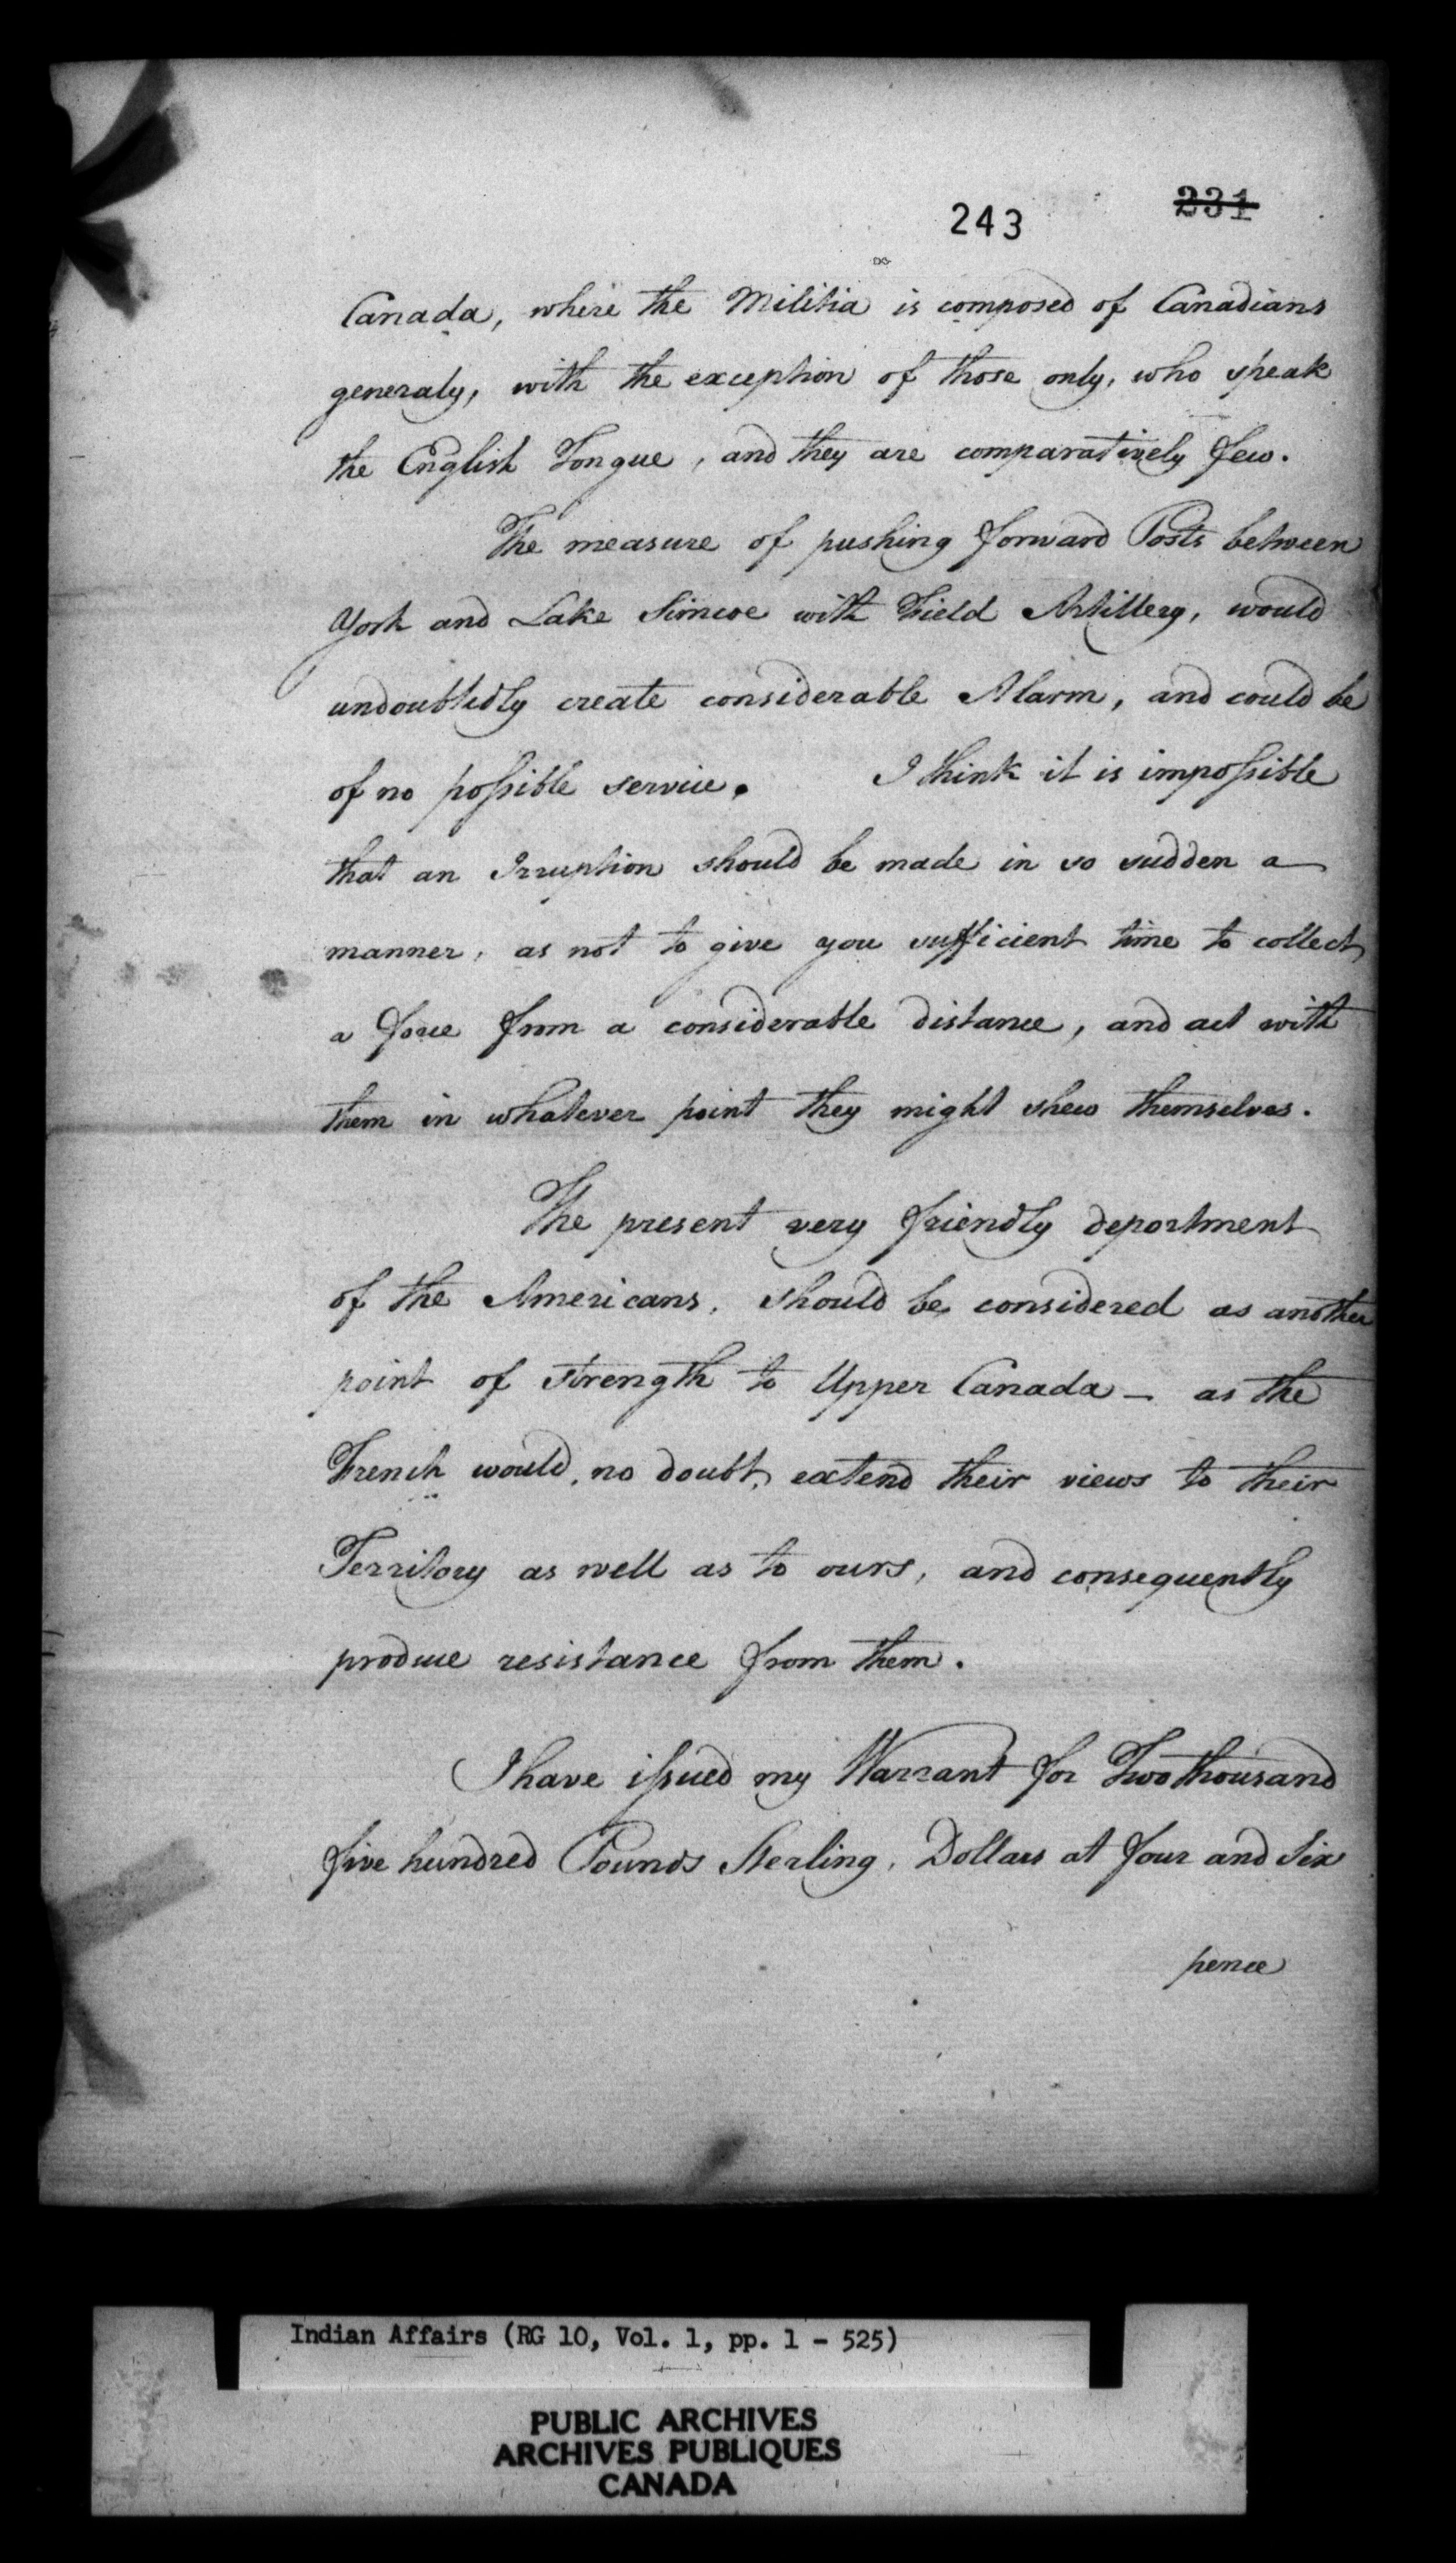 243
231
Canada, where the Militia is composed of Canadians
generaly, with the exception of those only, who speak
the English Tongue, and they are comparatively few.
The measure of pushing forward Posts between
York and Lake Simcoe with Field Artillery, would
undoubtedly create considerable Alarm, and could be
of no possible service. I think it is impossible
that an Irruption should be made in so sudden a
manner, as not to give you sufficient time to collect
a force from a considerable distance, and act with
them in whatever point they might shew themselves.
The present very friendly deportment
of the Americans, should be considered as another
point of strength to Upper Canada — as the
French would, no doubt, extend their views to their
Territory as well as to ours, and consequently
produce resistance from them.
I have issued my Warrant for Two thousand
five hundred Pounds Sterling, Dollars at four and Six
pence
Indian Affairs (RG 10, Vol. 1, pp. 1 - 525)
PUBLIC ARCHIVES
ARCHIVES PUBLIQUES
CANADA